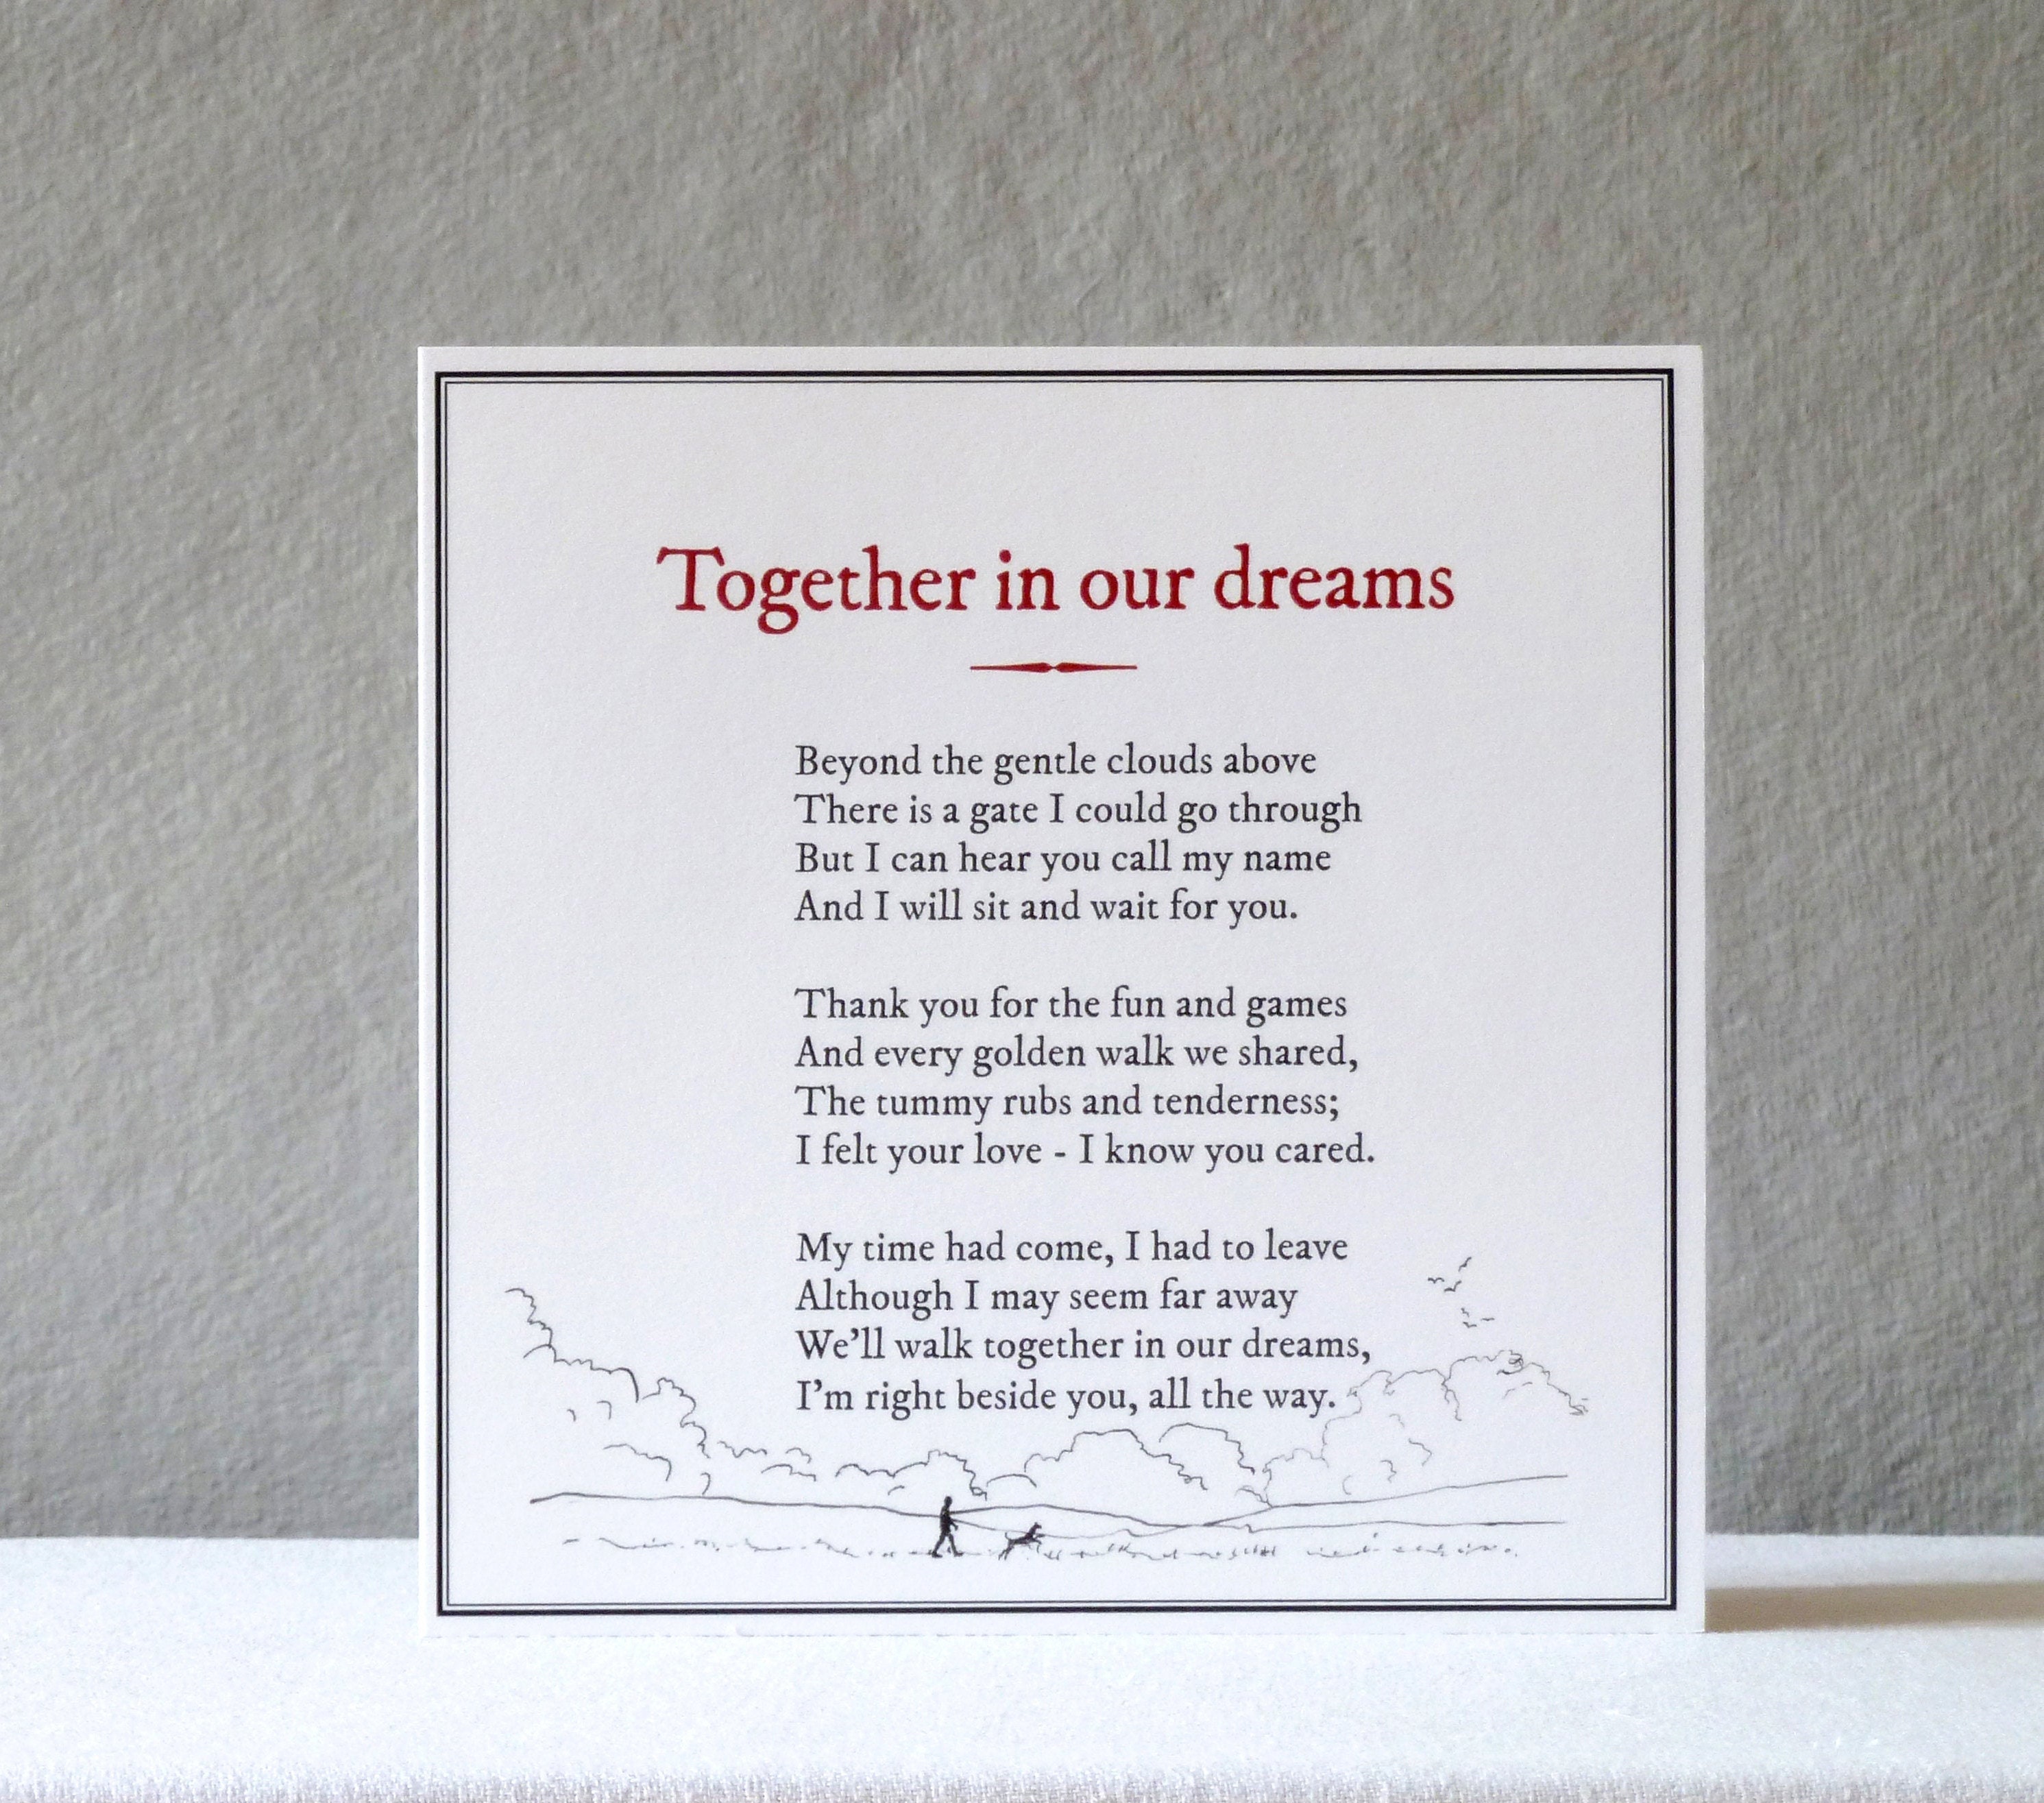 Together in our dreams
Beyond the gentle clouds above
There is a gate I could go through
But I can hear you call my name
And I will sit and wait for you.
Thank you for the fun and games
And every golden walk we shared,
The tummy rubs and tenderness;
I felt your love - I know you cared.
My time had come, I had to leave
Although I may seem far away
We'll walk together in our dreams,
I'm right beside you, all the way.